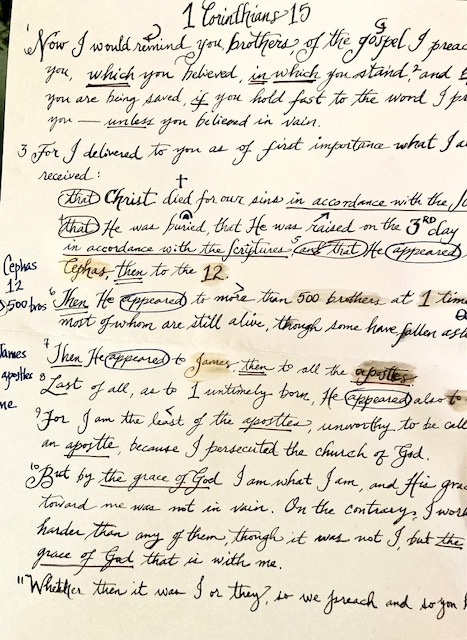 1 Corinthians 15
1 Now I would remind you, brothers, of the gospel I preac
you, which you believed, in which you stand, 2 and
you are being saved, if you hold fast to the word I p
you — unless you believed in vain.
3 For I delivered to you as of first importance what I a
received:
that Christ died for our sins in accordance with the
4 that He was buried, that He was raised on the 3RD day
in accordance with the Scriptures, 5 and that He appeared
Cephas, then to the 12.
Cephas
12
500 bros
6 Then He appeared to more than 500 brothers at 1 tim
most of whom are still alive, though some have fallen asl
James
apostles
me
7 Then He appeared to James, then to all the apostles
8 Last of all, as to 1 untimely born, He appeared also to
9 For I am the least of the apostles, unworthy to be call
an apostle, because I persecuted the church of God.
10 But by the grace of God I am what I am, and His grac
toward me was not in vain. On the contrary, I work
harder than any of them, though it was not I, but the
grace of God that is with me.
11 Whether then it was I or they, so we preach and so you